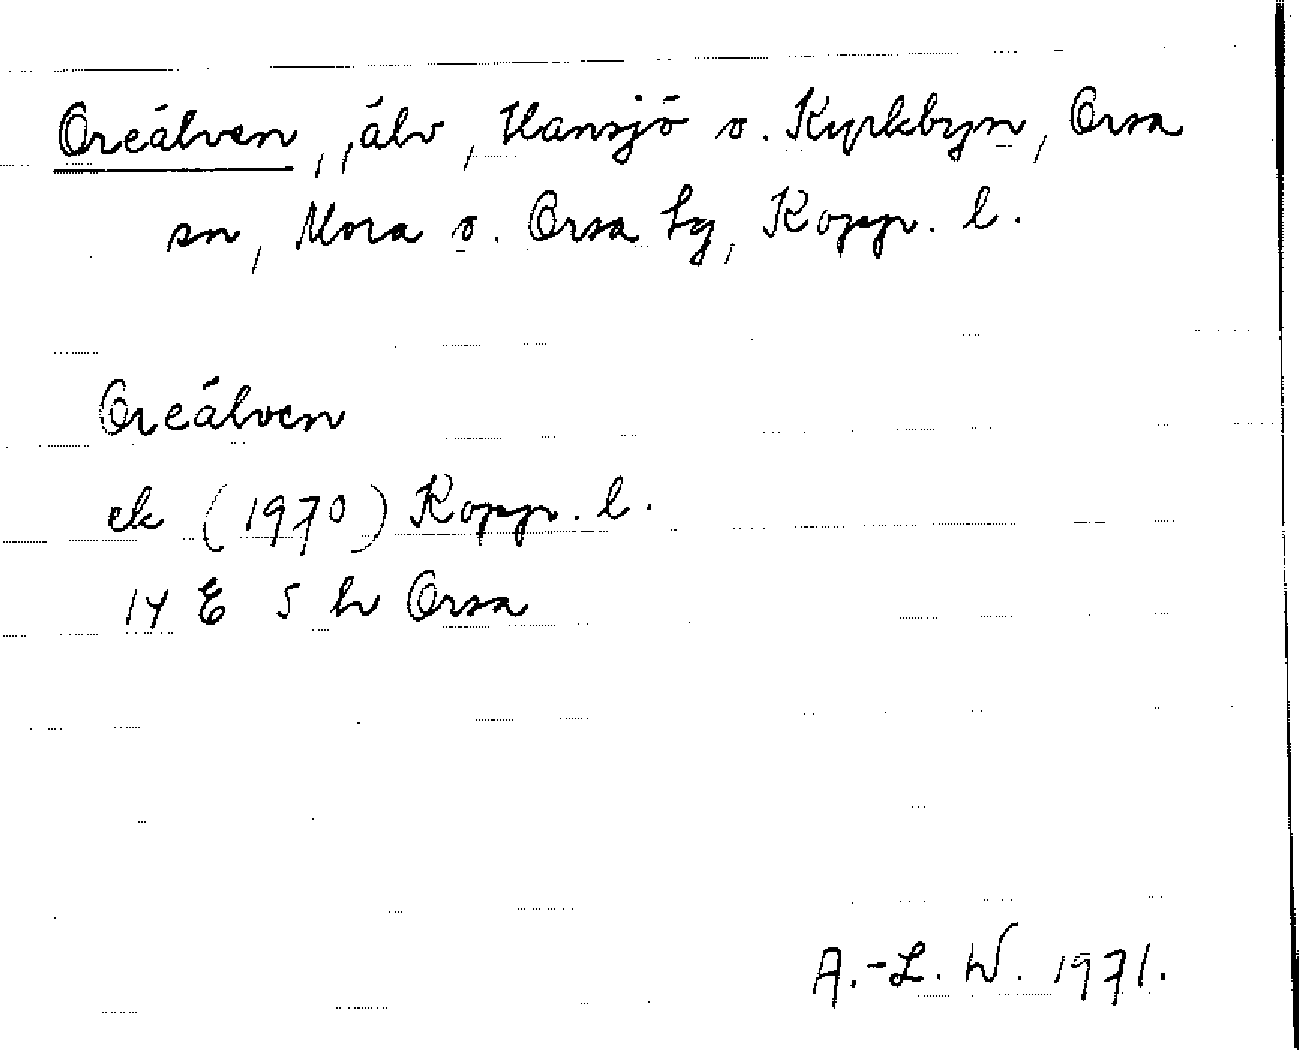 Oreälven, älv, Hansjö o. Kyrkbyn, Orsa
sn, Mora o. Orsa tg, Kopp. l.
Oreälven
ek (1970) Kopp. l.
14 E 5 h Orsa
A.-L. W. 1971.